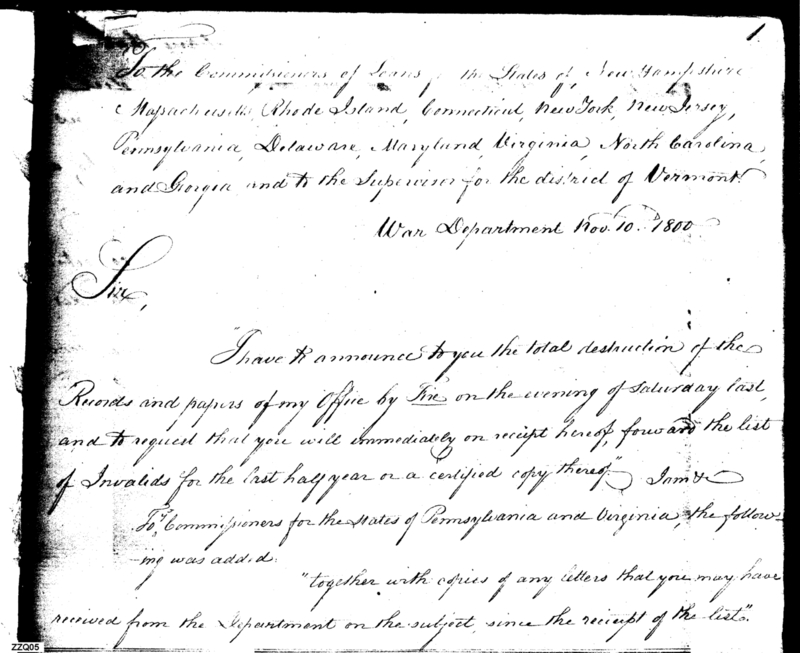 1
To the Commissioners of Loans for the States of New Hampshire
Massachusetts Rhode Island, Connecticut, New York, New Jersey,
Pennsylvania, Delaware, Maryland, Virginia, North Carolina,
and Georgia and to the Supervisor for the district of Vermont.
War Department Nov. 10. 1800
Sir,
"I have to announce to you the total destruction of the
Records and papers of my Office by Fire on the evening of Saturday last,
and to request that you will immediately on receipt hereof, forward the list
of Invalids for the last half year or a certified copy thereof" I am &
To Commissioners for the States of Pennsylvania and Virginia, the follow-
ing was added.
"together with copies of any letters that you may have
received from the Department on the subject, since the receipt of the list".
ZZQ05